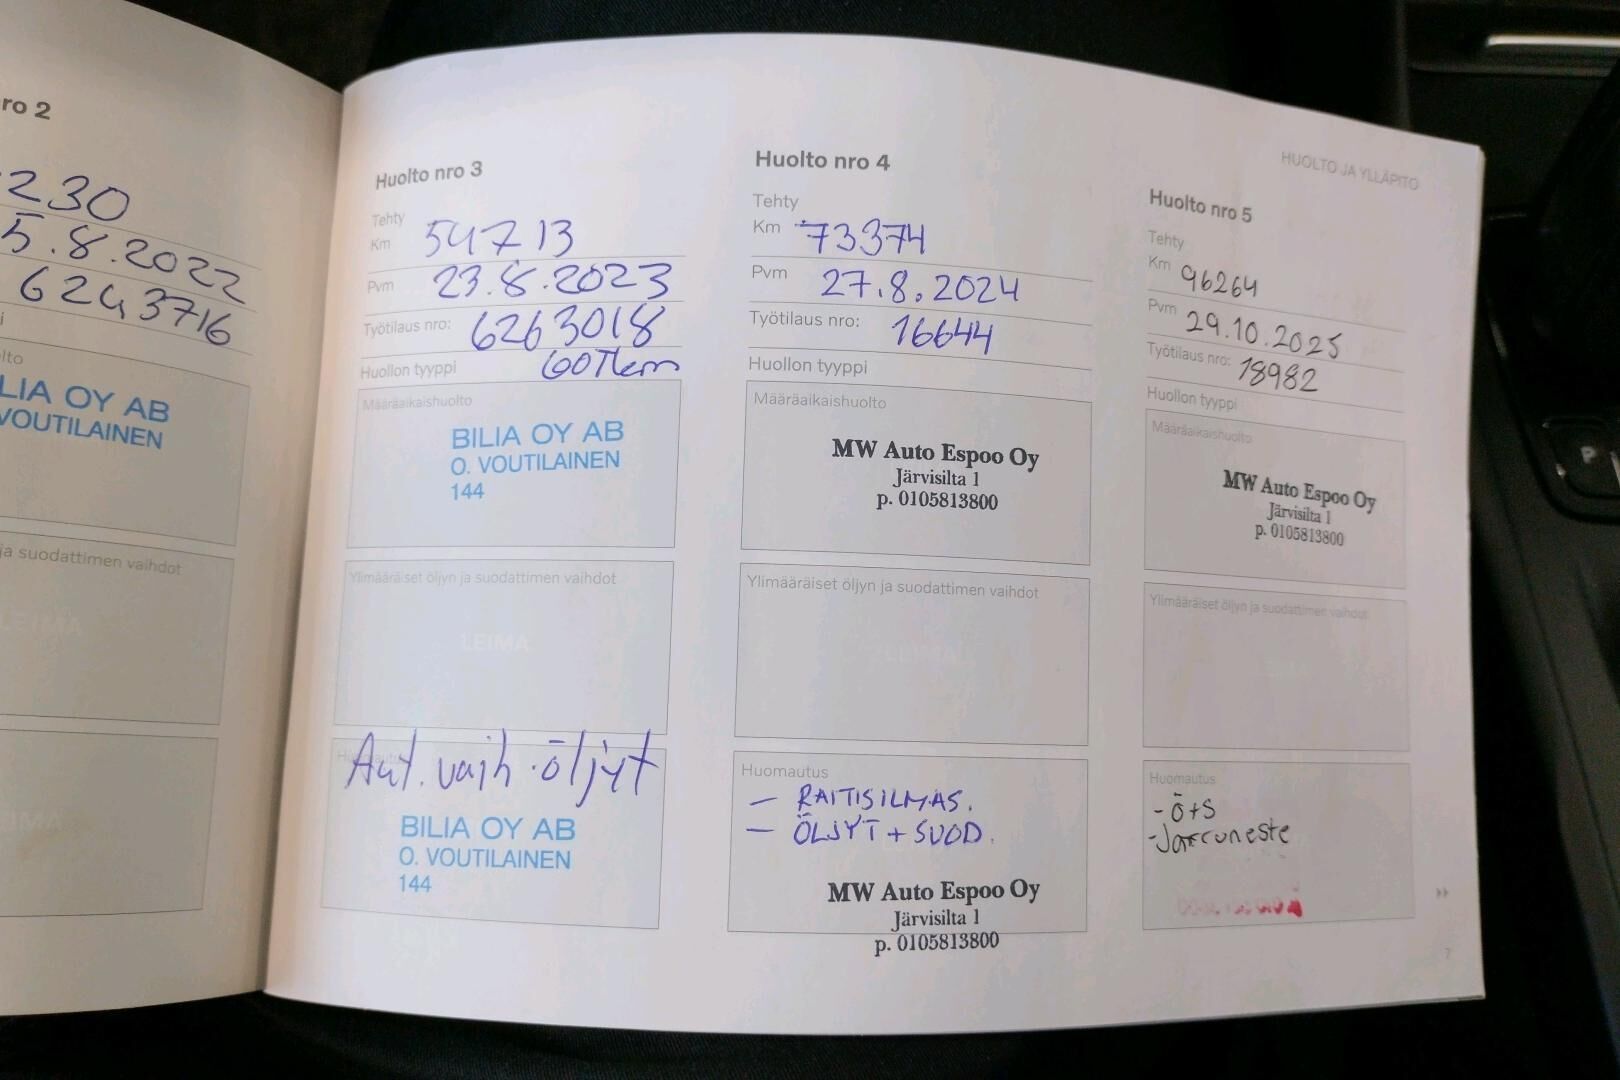 ro 2
230
5.8.2022
6243716
lto
LIA OY AB
VOUTILAINEN
ja suodattimen vaihdot
LEIMA
Huolto nro 3
Tehty
Km 54713
Pvm 23.8.2023
Työtilaus nro: 6263018
Huollon tyyppi 60Tkm
Määräaikaishuolto
BILIA OY AB
O. VOUTILAINEN
144
Ylimääräiset öljyn ja suodattimen vaihdot
LEIMA
Aut. vaih. öljyt
BILIA OY AB
O. VOUTILAINEN
144
Huolto nro 4
Tehty
Km 73374
Pvm 27.8.2024
Työtilaus nro: 16644
Huollon tyyppi
Määräaikaishuolto
MW Auto Espoo Oy
Järvisilta 1
p. 0105813800
Ylimääräiset öljyn ja suodattimen vaihdot
LEIMA
Huomautus
- RAITISILMAS.
- ÖLJYT + SUOD.
MW Auto Espoo Oy
Järvisilta 1
p. 0105813800
HUOLTO JA YLLÄPITO
Huolto nro 5
Tehty
Km 96264
Pvm 29.10.2025
Työtilaus nro: 18982
Huollon tyyppi
Määräaikaishuolto
MW Auto Espoo Oy
Järvisilta 1
p. 0105813800
Ylimääräiset öljyn ja suodattimen vaihdot
Huomautus
- Ö+S
- Jarruneste
7
P